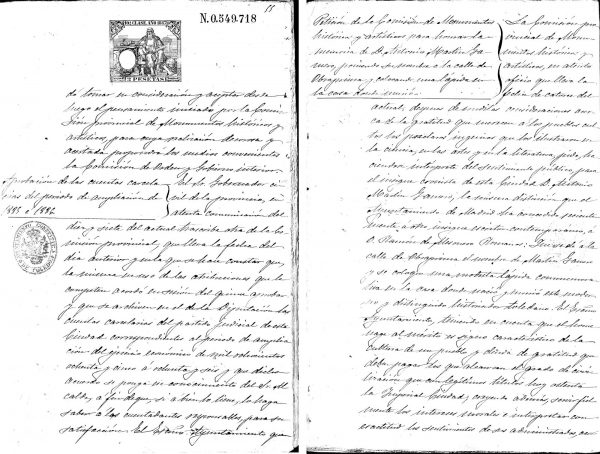 11
N.0.549.718
11ª CLASE. AÑO 1887
75 PESETAS
de tomar en consideracion y aceptar desde
luego el pensamiento iniciado por la Comi-
sion provincial de Monumentos históricos y
artísticos, para cuya realizacion decorosa y
acertada propondrá los medios convenientes
la Comision de Orden y Gobierno interior.
Aprobacion de las cuentas carcela-
rias del periodo de ampliacion de
1885 á 1886
El Sr. Gobernador ci-
vil de la provincia, en
atenta comunicacion del
dia y siete del actual trascribe otra de la Co-
mision provincial, que lleva la fecha del
dia anterior y en la que se hace constar que,
la misma en uso de las atribuciones que la
competen acordó en sesion del quince aprobar
y que se archiven en el de la Diputacion las
cuentas carcelarias del partido judicial de esta
Ciudad correspondientes al periodo de amplia-
cion del ejercicio económico de mil ochocientos
ochenta y cinco á ochenta y seis y que dicho
acuerdo se ponga en conocimiento del Sr. Al-
calde, á fin de que, si á bien lo tiene, lo haga
saber á los cuentadantes responsables, para su
satisfaccion. El Excmo. Ayuntamiento que
Peticion de la Comision de Monumentos
históricos y artísticos para honrar la
memoria de D. Antonio Martin Ga-
mero, poniendo su nombre á la calle de
Obra prima y colocando una lápida en
la casa donde murió.
La Comision pro-
vincial de Monu-
mentos históricos y
artísticos, en atento
oficio que lleva la
fecha de catorce del
actual, despues de eruditas consideraciones acer-
ca de la gratitud que merecen á los pueblos cul-
tos los preclaros ingenios que los ilustraron en
la ciencia, en las artes y en la literatura, pide, ha-
ciéndose intérprete del sentimiento público, para
el insigne cronista de esta Ciudad D. Antonio
Martin Gamero, la misma distincion que el
Ayuntamiento de Madrid ha acordado reciente-
mente á otro insigne escritor contemporáneo, á
D. Ramon de Mesonero Romanos: Que se dé á la
calle de Obraprima el nombre de Martin Gamero
y se coloque una modesta lápida conmemora-
tiva en la casa donde nació y murió este modes-
to y distinguido historiador toledano. El Excmo.
Ayuntamiento, teniendo en cuenta que el home-
nage al mérito es signo característico de la
cultura de un pueblo y deuda de gratitud que
deben pagar los que alcanzan el grado de civi-
lizacion que con legítimos títulos hoy ostenta
la Imperial Ciudad, creyendo además, servir fiel-
mente los intereses morales é interpretar con
exactitud los sentimientos de sus administrados, acor-